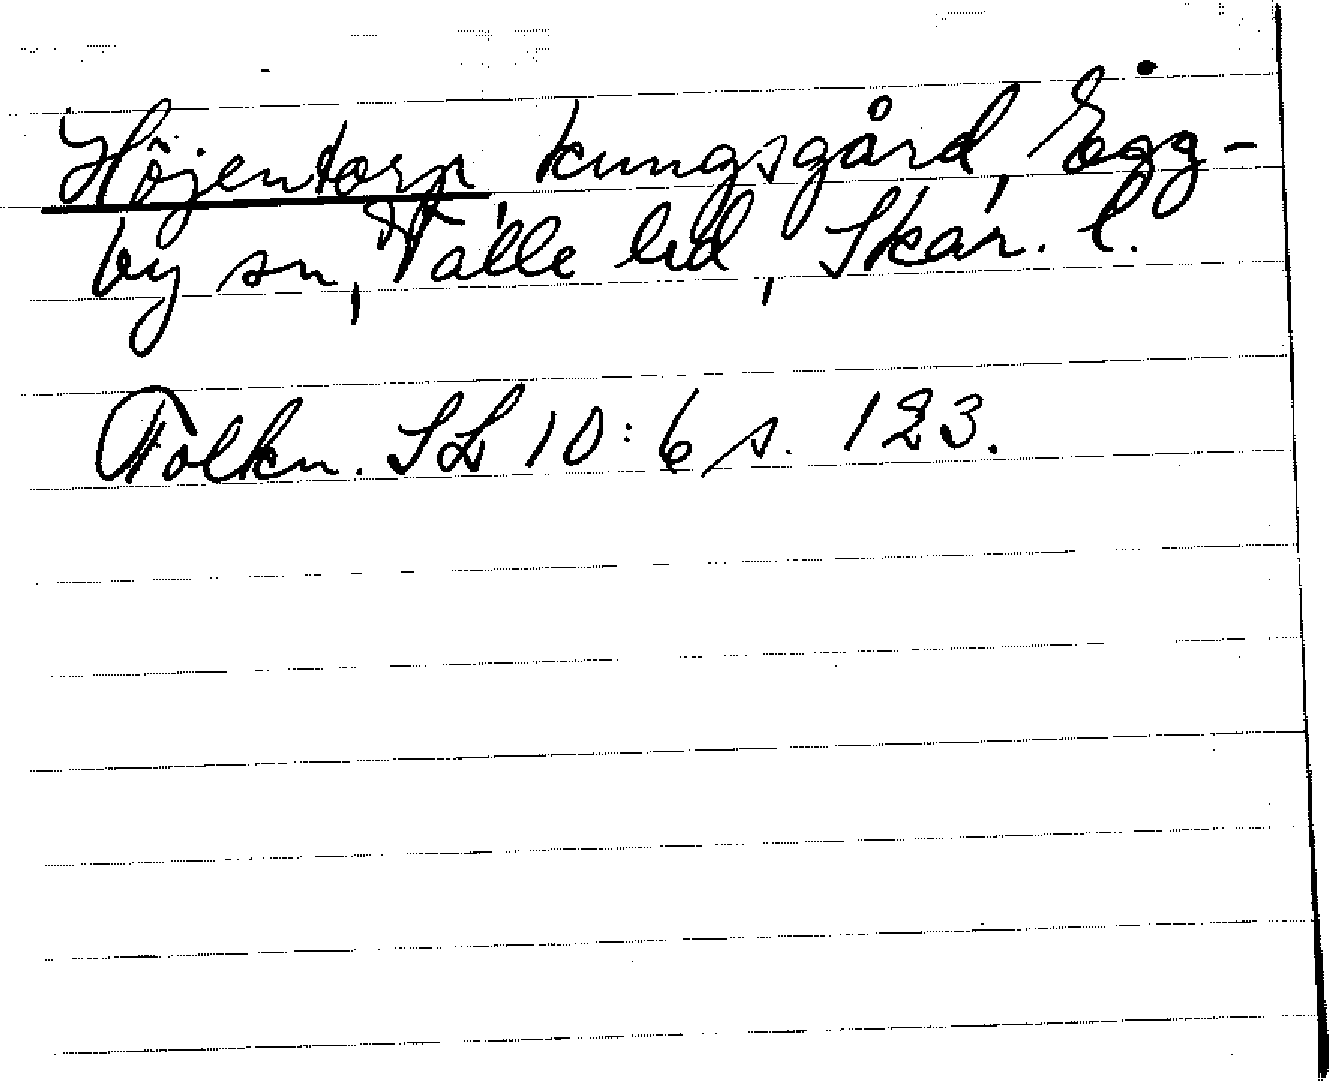 Höjentorp kungsgård, Egg-
by sn, Valle hd, Skar. l.
Folkn. SL 10:6 s. 123.